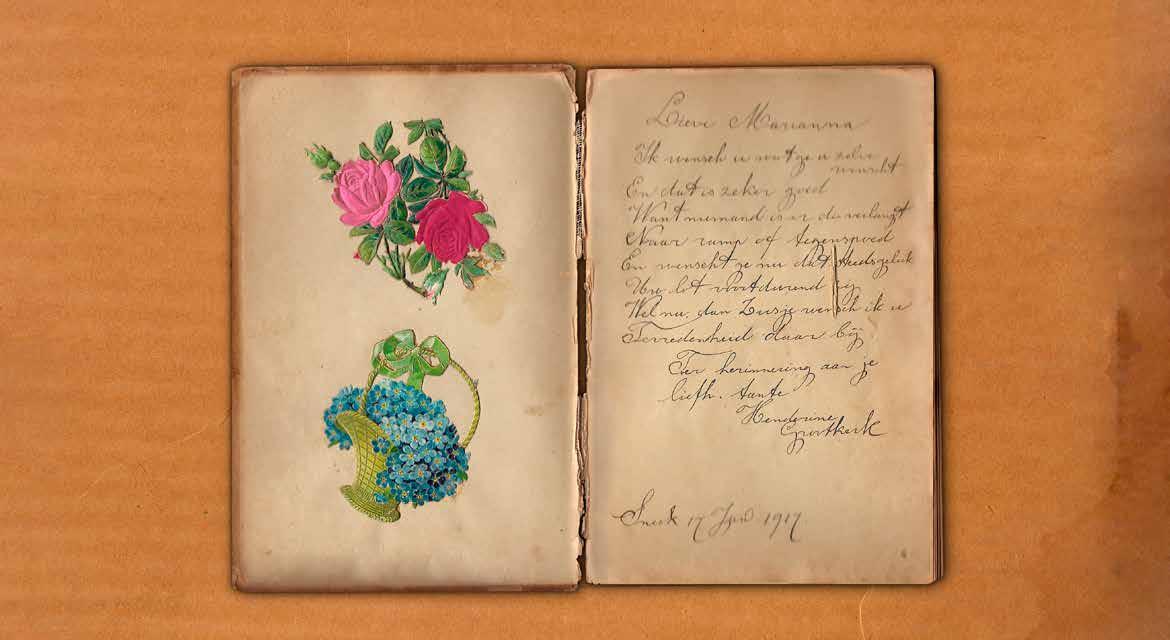 Lieve Marianna
Ik wensch u wat ge u zelve
wenscht
En dat is zeker goed
Want niemand is er die verlangt
Naar ramp of tegenspoed
En wenscht ge nu dat steeds geluk
Uw lot voortdurend zij
Wel nu, dan Zusje wensch ik u
Tevredenheid daar bij
Ter herinnering aan je
liefh. tante
Henderine
Grootkerk
Sneek 17 1917